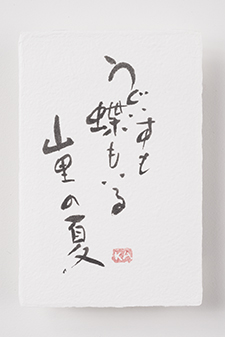 うぐいすも
蝶もいる
山里の夏
KA